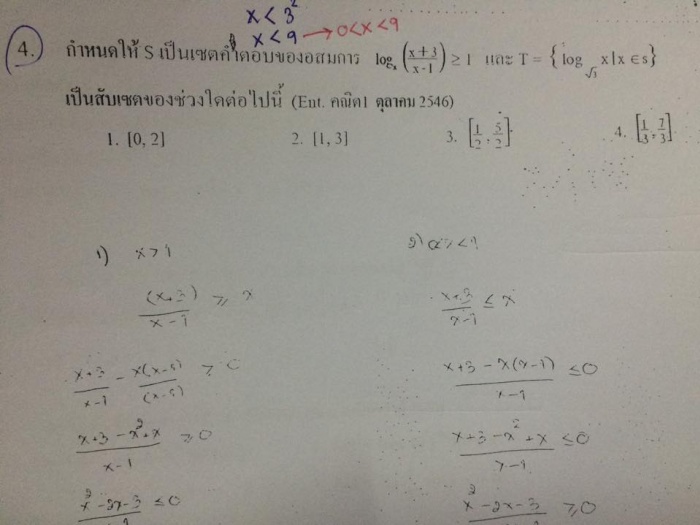 x < 3²
x < 9 → 0<x<9
4. กำหนดให้ S เป็นเซตคำตอบของอสมการ logₓ (x+3 / x-1) ≥ 1 และ T = { log_√3 x | x ∈ s}
เป็นสับเซตของช่วงใดต่อไปนี้ (Ent. คณิต1 ตุลาคม 2546)
1. [0, 2] 2. [1, 3] 3. [1/2, 5/2] 4. [1/3, 7/3]
1) x > 1
(x+3) / x-1 ≥ x
x+3 / x-1 ≤ x
x+3 / x-1 - x(x-1) / (x-1) ≥ 0
x+3 - x(x-1) / x-1 ≤ 0
x+3 - x² + x / x-1 ≥ 0
x+3 - x² + x / x-1 ≤ 0
x² - 2x - 3 ≤ 0
x² - 2x - 3 ≥ 0